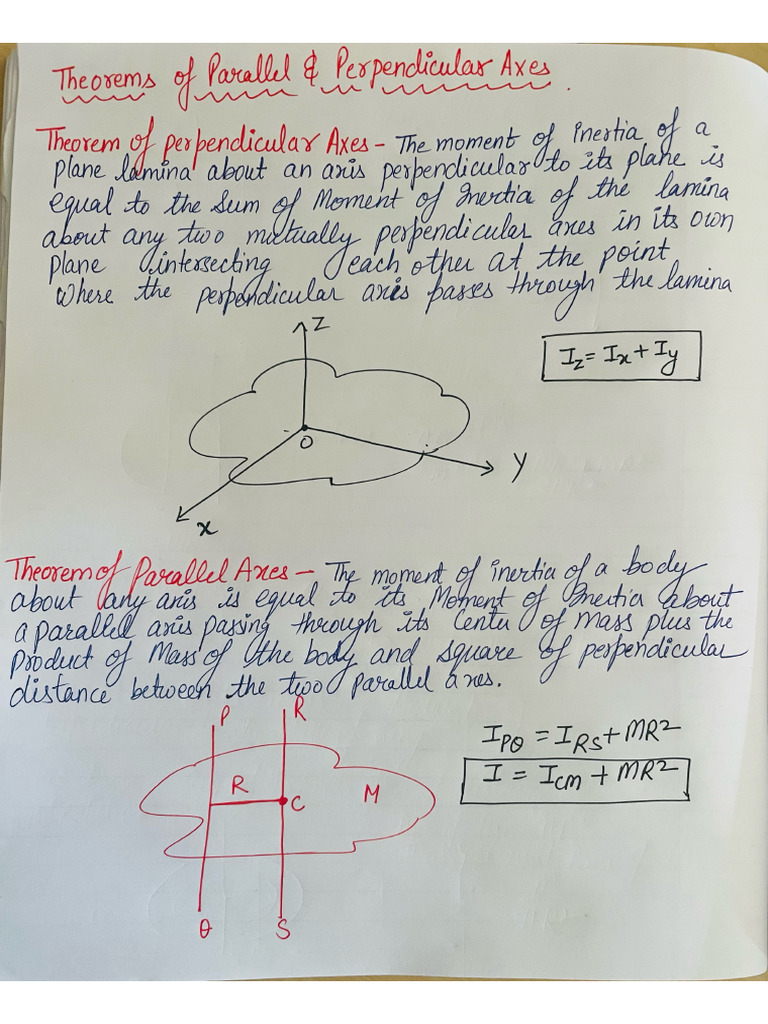 Theorems of Parallel & Perpendicular Axes.
Theorem of perpendicular Axes - The moment of inertia of a
plane lamina about an axis perpendicular to its plane is
equal to the sum of Moment of Inertia of the lamina
about any two mutually perpendicular axes in its own
plane intersecting each other at the point
Where the perpendicular axis passes through the lamina
Z
I_z = I_x + I_y
O
Y
x
Theorem of Parallel Axes - The moment of inertia of a body
about any axis is equal to its Moment of Inertia about
a parallel axis passing through its Center of mass plus the
product of Mass of the body and square of perpendicular
distance between the two parallel axes.
P R
I_PQ = I_RS + MR²
I = I_CM + MR²
R C M
Q S